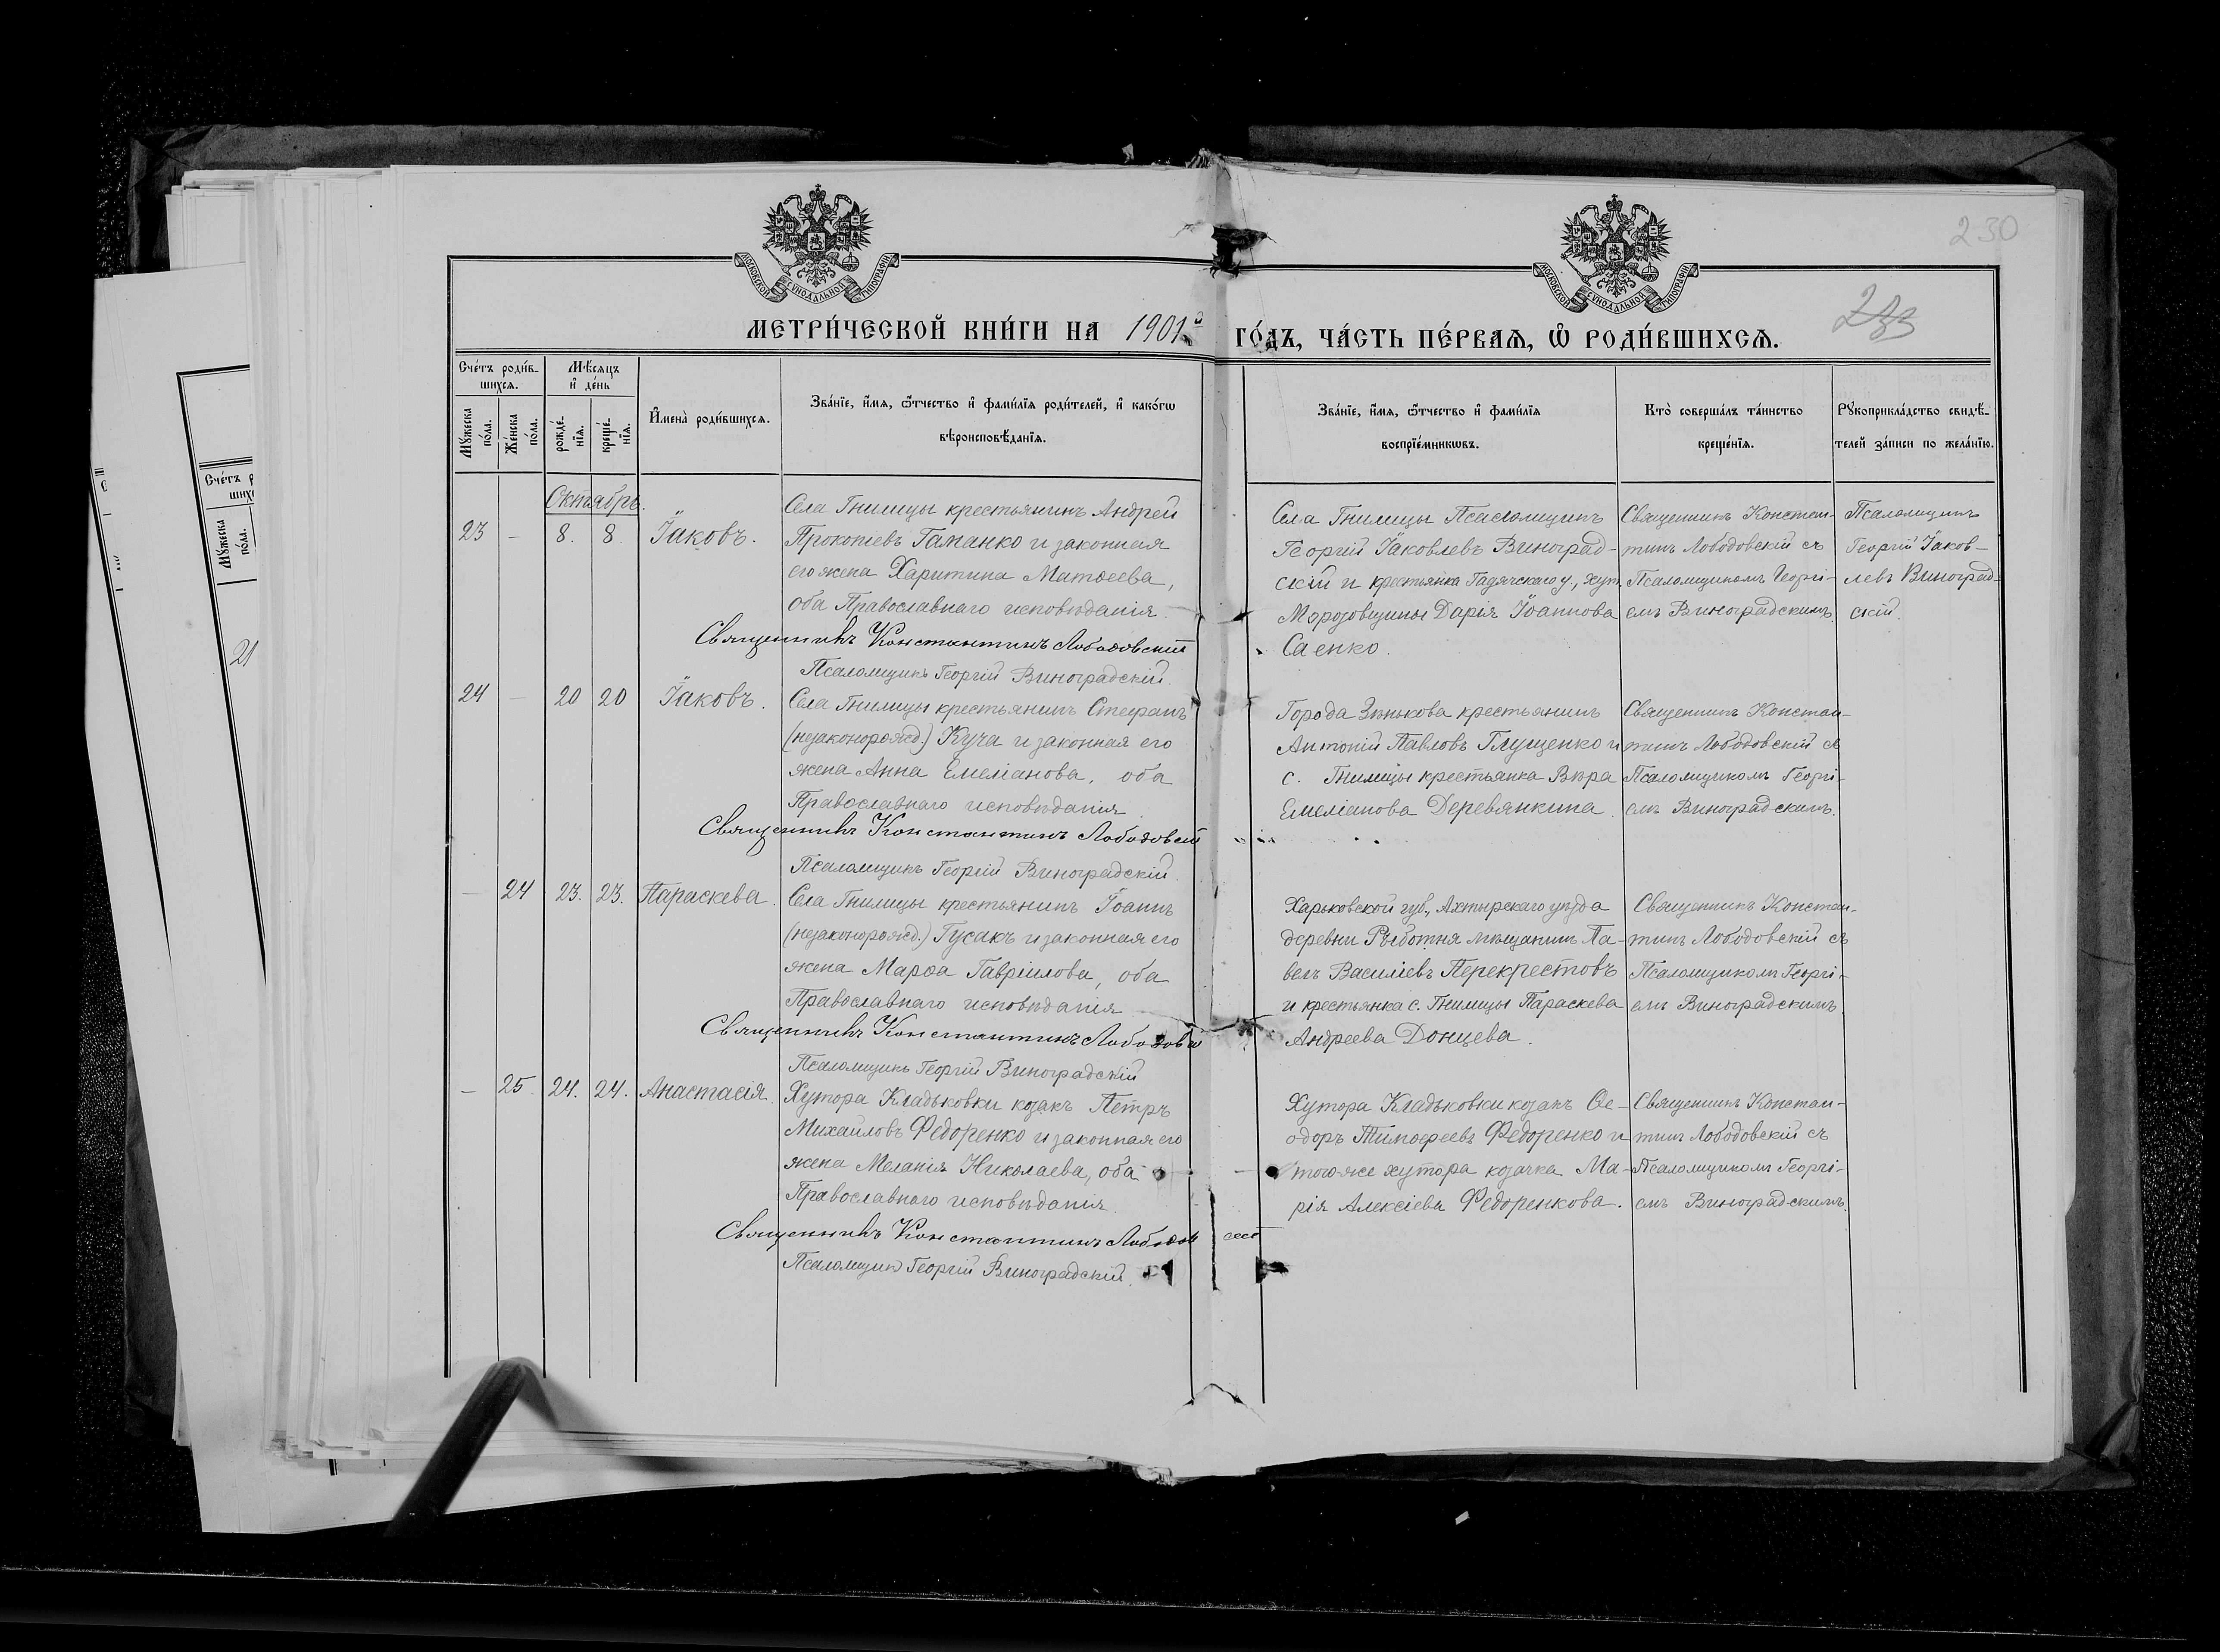 230
233
МОСКОВСКОЙ СѴНОДАЛЬНОЙ ТИПОГРАФІИ
МОСКОВСКОЙ СѴНОДАЛЬНОЙ ТИПОГРАФІИ
МЕТРИ́ЧЕСКОЙ КНИ́ГИ НА 1901й ГО́ДЪ, ЧА́СТЬ ПЕ́РВАѦ, Ѡ҆ РОДИ́ВШИХСѦ.
Сче́тъ роди́в-
шихсѧ.
Мѣ́сѧцъ
и҆ де́нь
Мꙋ́жеска по́ла.
Же́нска по́ла.
рожде́-
нїѧ.
креще́-
нїѧ.
И҆мена̀ роди́вшихсѧ.
Зва́нїе, и҆́мѧ, ѻ҆́тчество и҆ фами́лїѧ роди́телей, и҆ како́гѡ
вѣроисповѣ́данїѧ.
Зва́нїе, и҆́мѧ, ѻ҆́тчество и҆ фами́лїѧ
воспрїе́мникѡвъ.
Кто̀ соверша́лъ та́инство
креще́нїѧ.
Рꙋкоприкла́дство свидѣ́-
телей за́писи по жела́нїю.
Октябрь.
23 - 8. 8. Іаковъ.
Села Гнилицы крестьянинъ Андрей
Прокопіевъ Гапанко и законная
его жена Харитина Матѳеева,
оба Православнаго исповѣданія.
Священникъ Константинъ Лободовскій
Псаломщикъ Георгій Виноградскій.
Села Гнилицы Псаломщикъ
Георгій Іаковлевъ Виноград-
скій и крестьянка Гадячскаго у., хут.
Морозовщины Дарія Іоаннова
Саенко.
Священникъ Констан-
тинъ Лободовскій съ
Псаломщикомъ Георгі-
емъ Виноградскимъ.
Псаломщикъ
Георгій Іаков-
левъ Виноград-
скій.
24 - 20 20 Іаковъ.
Села Гнилицы крестьянинъ Стефанъ
(незаконорожд.) Куча и законная его
жена Анна Емеліанова, оба
Православнаго исповѣданія
Священникъ Константинъ Лободовскій
Псаломщикъ Георгій Виноградскій.
Города Зѣнькова крестьянинъ
Антоній Павловъ Глущенко и
с. Гнилицы крестьянка Вѣра
Емеліанова Деревянкина.
Священникъ Констан-
тинъ Лободовскій съ
Псаломщикомъ Георгі-
емъ Виноградскимъ.
- 24 23. 23. Параскева.
Села Гнилицы крестьянинъ Іоаннъ
(незаконорожд.) Гусакъ и законная его
жена Марѳа Гавріилова, оба
Православнаго исповѣданія
Священникъ Константинъ Лободовскій
Псаломщикъ Георгій Виноградскій
Харьковской губ., Ахтырскаго уѣзда
деревни Рыботня мѣщанинъ Па-
велъ Василіевъ Перекрестовъ
и крестьянка с. Гнилицы Параскева
Андреева Донцева.
Священникъ Констан-
тинъ Лободовскій съ
Псаломщикомъ Георгі-
емъ Виноградскимъ
- 25 24. 24. Анастасія.
Хутора Кладьковки козакъ Петръ
Михаиловъ Федоренко и законная его
жена Меланія Николаева, оба
Православнаго исповѣданія.
Священникъ Константинъ Лободов
Псаломщикъ Георгій Виноградскій.
Хутора Кладьковки козакъ Ѳе-
одоръ Тимоѳеевъ Федоренко и
того же хутора козачка Ма-
рія Алексіева Федоренкова.
Священникъ Констан-
тинъ Лободовскій съ
Псаломщикомъ Георгі-
емъ Виноградскимъ.
Сче́тъ р
ших
Мꙋ́жеска по́ла.
21